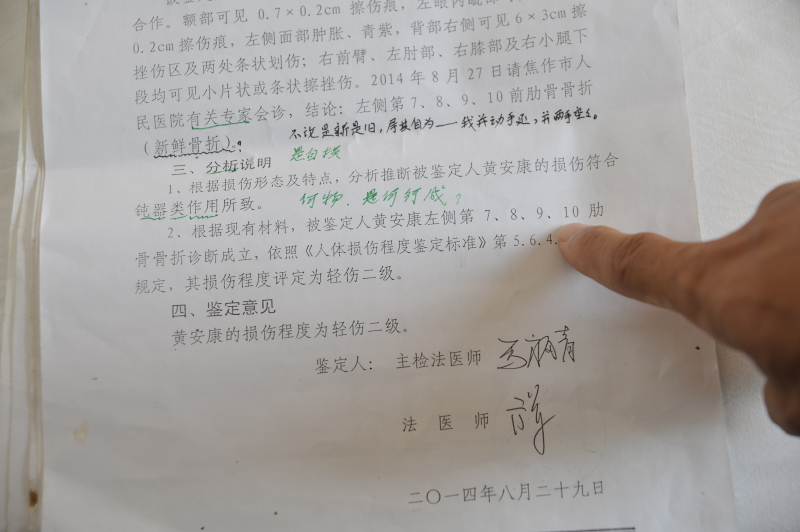 合作。额部可见 0.7×0.2cm 擦伤痕，左眼内眦部
0.2cm 擦伤痕，左侧面部肿胀、青紫，背部右侧可见 6×3cm 擦
挫伤区及两处条状划伤；右前臂、左肘部、右膝部及右小腿下
段均可见小片状或条状擦挫伤。2014 年 8 月 27 日请焦作市人
民医院有关专家会诊，结论：左侧第 7、8、9、10 前肋骨骨折
（新鲜骨折）。
不说是新是旧，
三、分析说明
1、根据损伤形态及特点，分析推断被鉴定人黄安康的损伤符合
钝器类作用所致。
何物
2、根据现有材料，被鉴定人黄安康左侧第 7、8、9、10 肋
骨骨折诊断成立，依照《人体损伤程度鉴定标准》第 5.6.4.
规定，其损伤程度评定为轻伤二级。
四、鉴定意见
黄安康的损伤程度为轻伤二级。
鉴定人： 主检法医师
法 医 师
二〇一四年八月二十九日